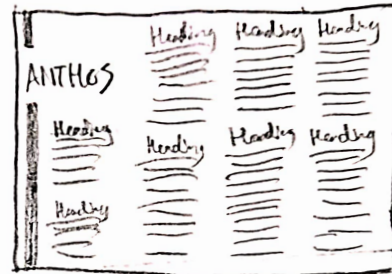 Heading
Heading
Heading
ANTHOS
Heading
Heading
Heading
Heading
Heading